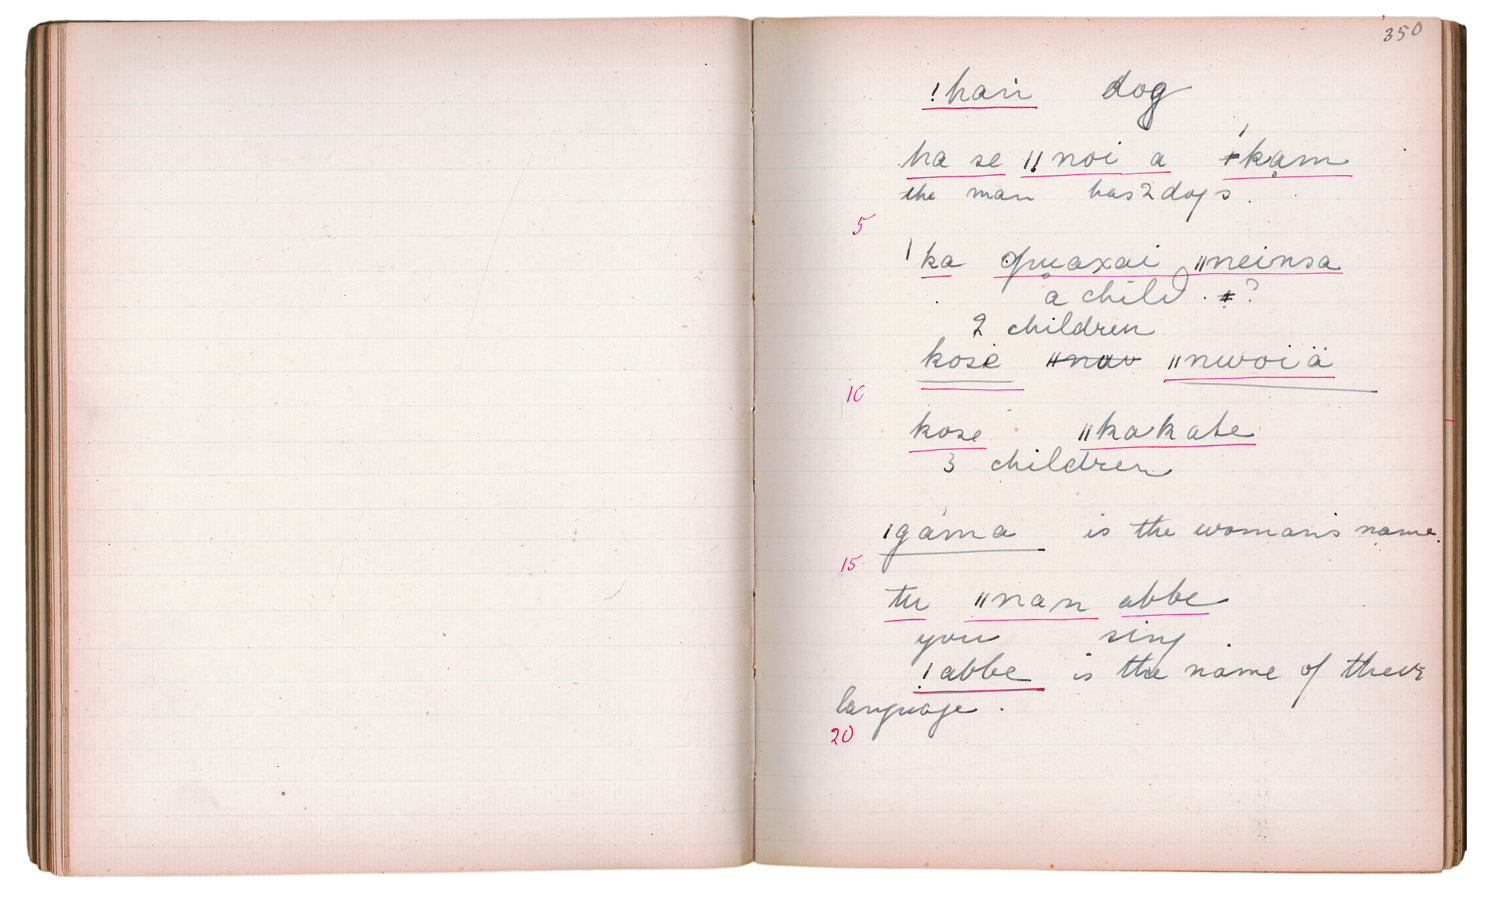 350
!hań dog
ha se ǁnoi a ǂkạm
the man has 2 dogs.
5
ǀka ǁneinsa
a child . ?
2 children
kosė ǁnwoiä
10
kose ǁkakate
3 children
ǀgáma is the woman's name.
15
tu ǁnan abbe
you sing .
!abbe is the name of their
language .
20